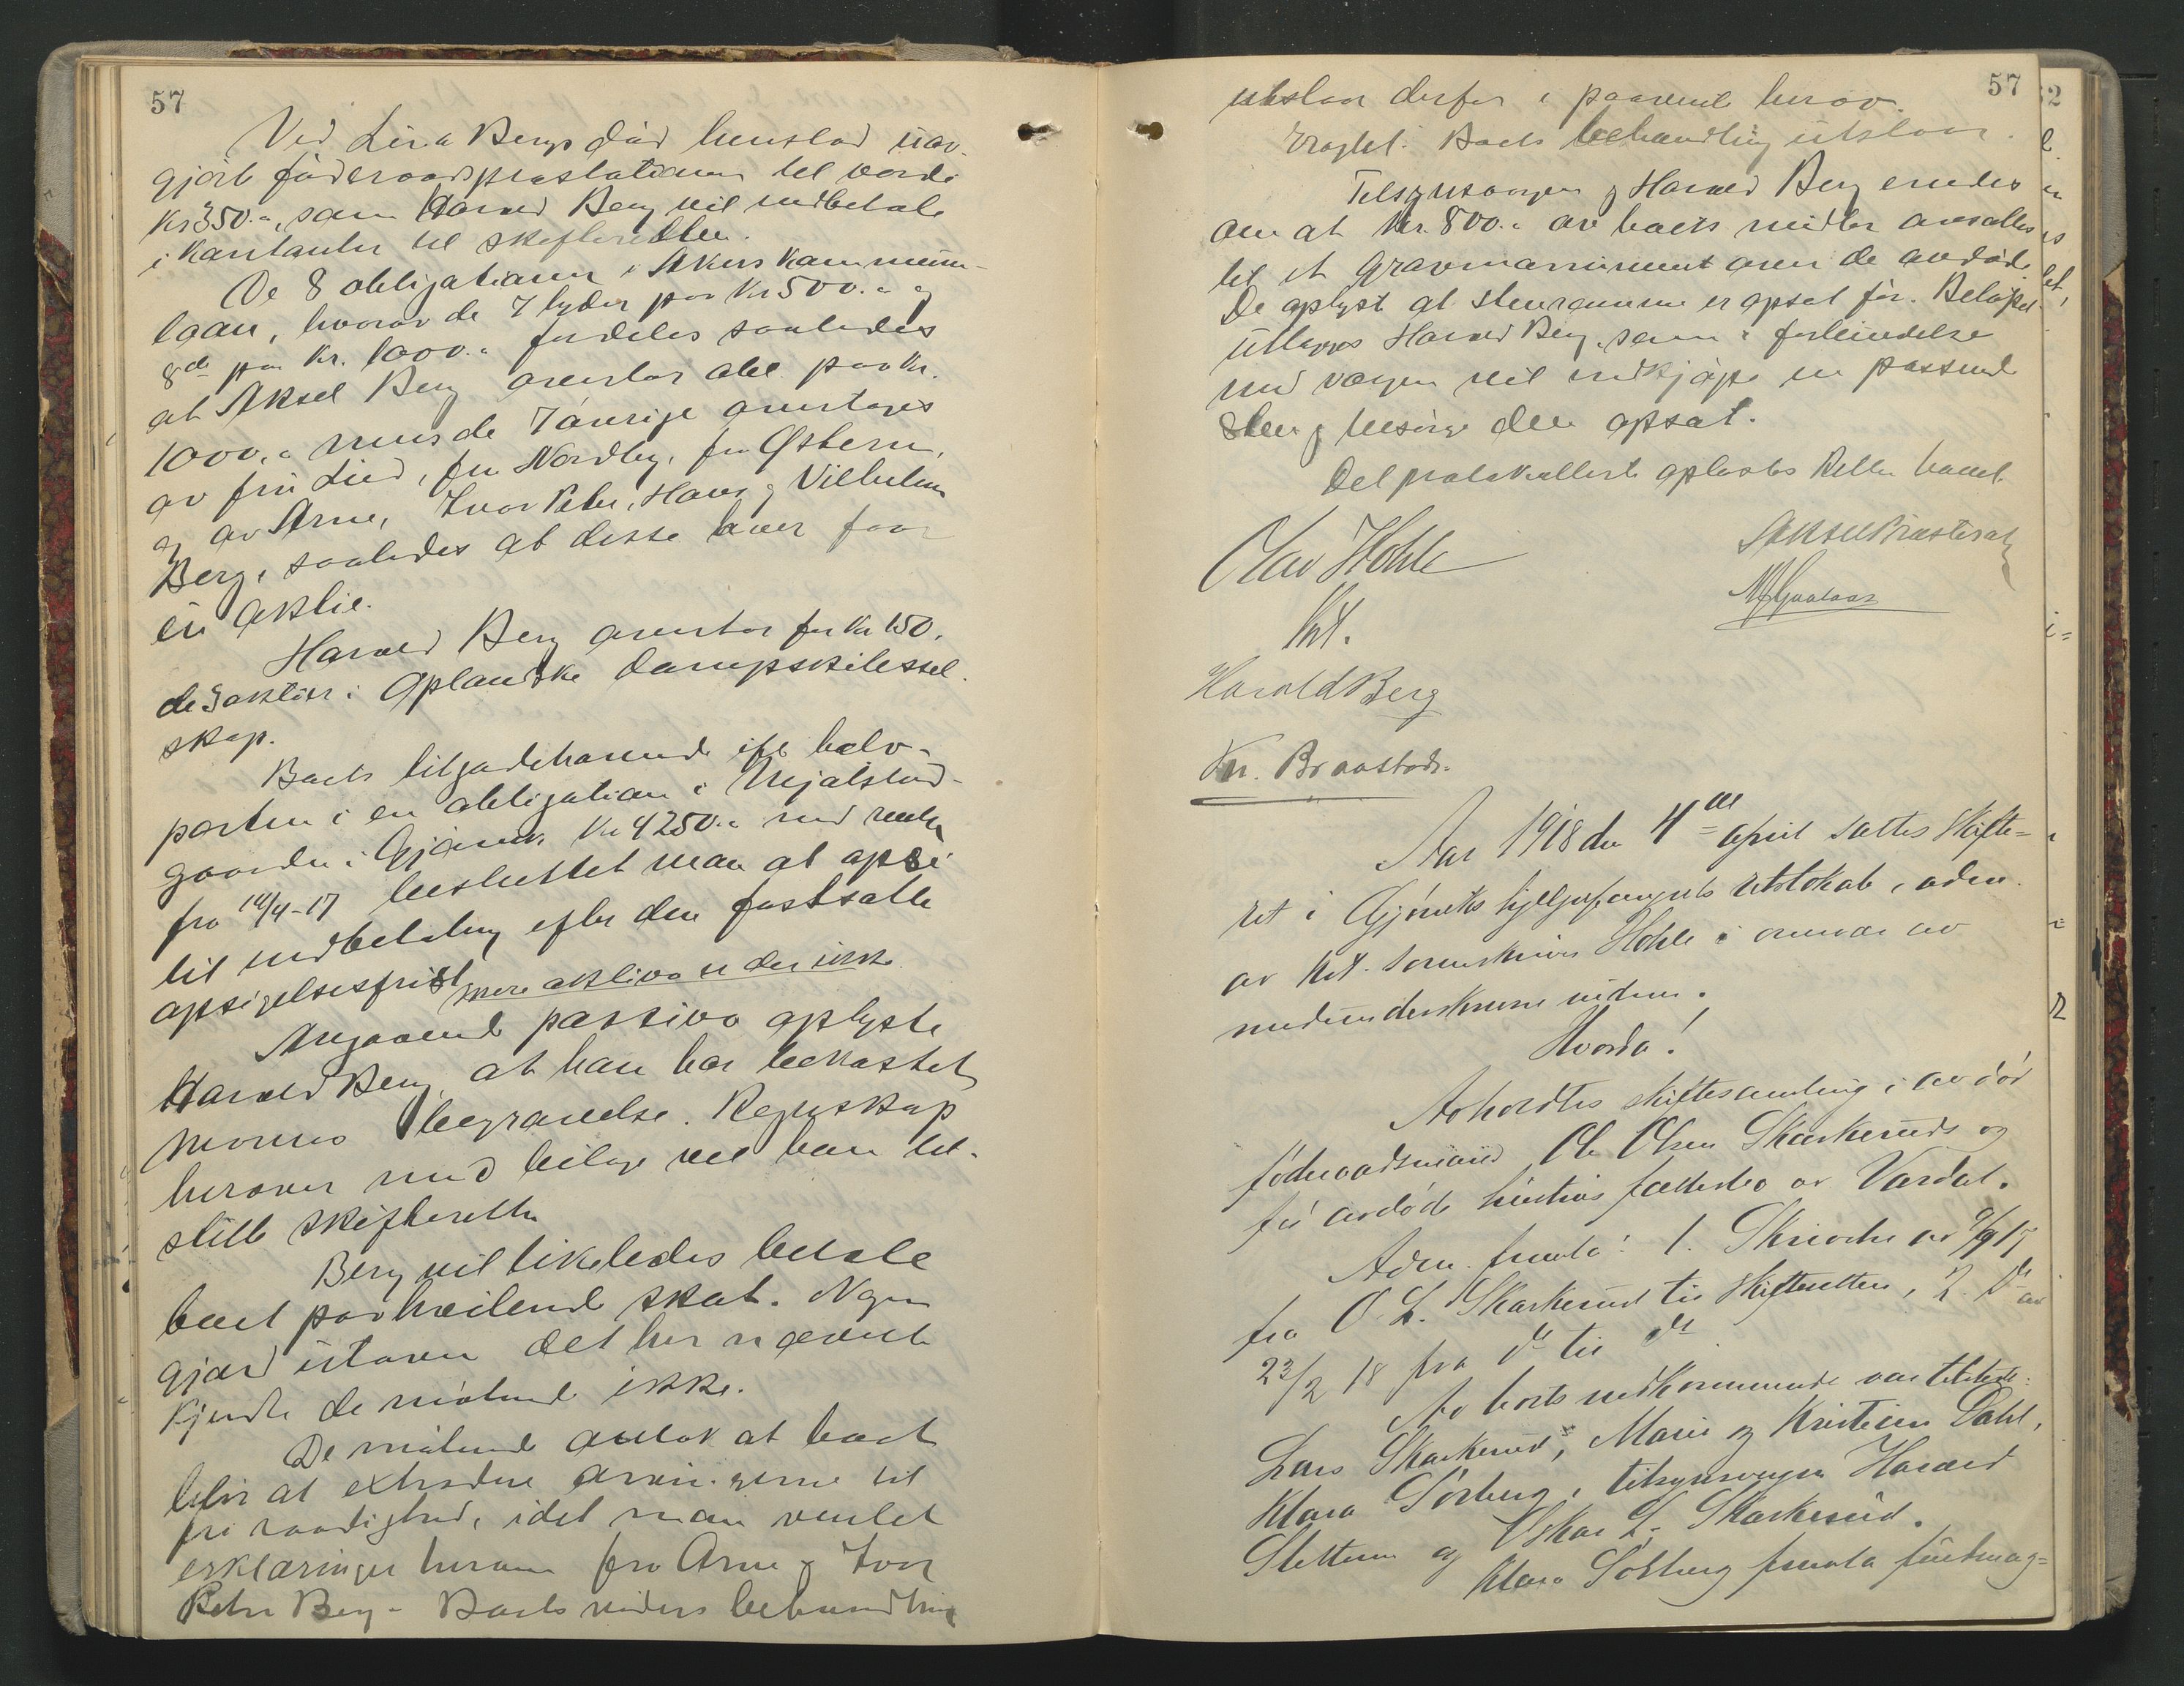 57
Ved Lina Bergs död henstod uav-
gjort föderaadspræstationer til værdi
Kr 350.-, som Harald Berg vil indbetale
i kontanter til skifteretten.
De 8 obligationer i Akers kommune-
laan, hvorav de 7 lyder paa Kr 500.- og
8de paa Kr. 1000.- fordeles saaledes
at Aksel Berg overtar den paa kr.
1000.- mens de 7 övrige overtages
av fru Lied, fru Nordby, fru Østern,
og av Arne, Ivar Peter, Hans og Vilhelm
Berg, saaledes at disse hver faar
en aktie.
Harald Berg overtar for Kr 150.
de 3 aktier i Oplandske dampskibssel-
skap.
Boets tilgodehavende ifl halv-
parten i en obligation i Mjølstad-
gaarden i Gjøvik Kr 4250.- med renter
fra 14/4-17 besluttet man at opsi
til indbetaling efter den fastsatte
opsigelsesfrist. Mere aktiva er der ikke.
Angaaende passiva oplyste
Harald Berg, at han har bekostet
morens begravelse. Regnskap
herover med bilage vil han til-
stille skifteretten
Berg vil likeledes betale
boet paahvilende skat. Nogen
gjæld utover det her nævnte
kjendte de mötende ikke.
De mötende antok at boet
blir at extradere arvingerne til
fri raadighed, idet man venter
erklæringer herom fra Arne og Ivar
Peter Berg - Boets videre behandling
57
utstaar derfor i paavente herav.
Eragtet: Boets behandling utstaar.
Tilsynsvergen og Harald Berg enedes
om at Kr. 800.- av boets midler avsættes
til et gravmonument over de avdöde.
De oplyst at stenrammen er opsat för. Belöpet
utlægges Harald Berg, som i forbindelse
med vergen vil indkjöpe en passende
sten og besörge den opsat.
Det protokollerte oplæstes Retten hævet.
Olav Hohle
Kst.
Aksel Præsterud
Harald Berg
Kr. Braastad.
Aar 1918 den 4de april sattes skifte-
ret i Gjøviks hjelpefengsels retslokale, adm.
av kst. sorenskriver Hohle i overvær av
medunderskrevne vidner.
Hvorda!
Avholdtes skiftesamling i avdöd
föderaadsmand Ole Olsen Skarkeruds og
før avdöde hustrus fællesbo av Vardal.
Adm. fremla: 1. Skrivelse av 9/9 17
fra O. L. Skarkerud til skifteretten, 2. do av
23/2 18 fra do til do
Av boets vedkommende var tilstede:
Lars Skarkerud, Marie og Kristian Dahl,
Klara Solberg, tilsynsvergen Harald
Slettum og Oskar L. Skarkerud.
Klara Solberg fremla fuldmag-